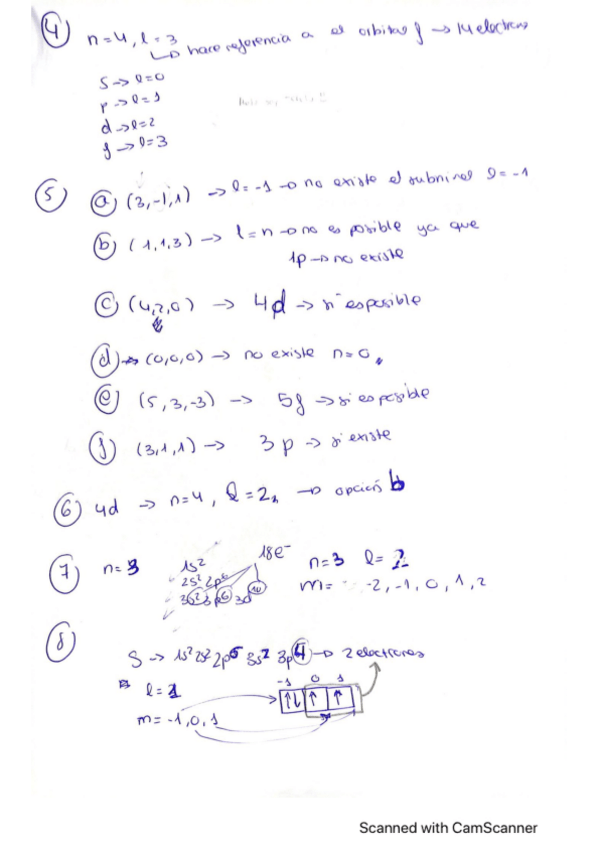 ④ n=4, l=3
↳ hace referencia a el orbital f → 14 electrons
s → l=0
p → l=1
d → l=2
f → l=3
⑤ ⓐ (3,-1,1) → l=-1 → no existe el subnivel l=-1
ⓑ (1,1,3) → l=n → no es posible ya que
1p → no existe
ⓒ (4,2,0) → 4d → si es posible
ⓓ → (0,0,0) → no existe n=0
ⓔ (5,3,-3) → 5f → si es posible
ⓕ (3,1,1) → 3p → si existe
⑥ 4d → n=4, l=2, → opción b
⑦ n=3 1s² 18e⁻ n=3 l=2
2s² 2p⁶ m= -2,-1,0,1,2
3s² 3p⁶ 3d¹⁰
⑧
S → 1s² 2s² 2p⁶ 3s² 3p⁴ → 2 electrones
l=1 -1 0 1
m=-1,0,1 ↑↓ ↑ ↑
Scanned with CamScanner